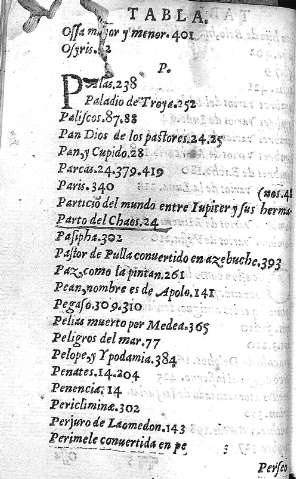 TABLA.
Ossa mayor y menor. 401
Osyris.
P.
Palas. 238
Paladio de Troya. 252
Paliscos. 87. 88
Pan Dios de los pastores. 24. 25
Pan, y Cupido. 28
Parcas. 24. 379. 419
Paris. 340
(nos. 4
Particiō del mundo entre Iupiter y sus herma-
Parto del Chaos. 24
Pasipha. 302
Pastor de Pulla conuertido en azebuche. 393
Paz, como la pintan. 261
Pean, nombre es de Apolo. 141
Pegaso. 309. 310
Pelias muerto por Medea. 365
Peligros del mar. 77
Pelope, y Ypodamia. 384
Penates. 14. 204
Penencia, 14
Periclimina. 302
Perjuro de Laomedon. 143
Perimele conuertida en pe
Perseo